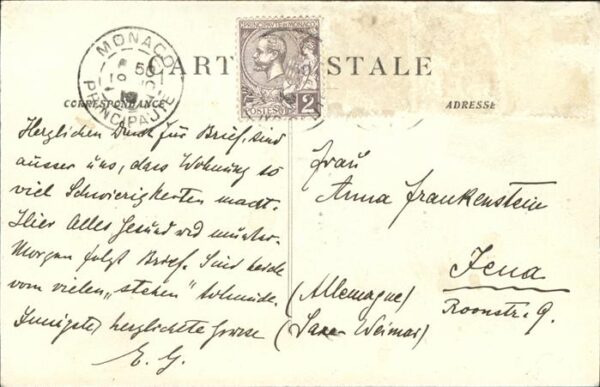 MONACO
PRINCIPAUTÉ
PRINCIPAUTÉ DE MONACO
POSTES
2
CARTE POSTALE
CORRESPONDANCE
ADRESSE
Herzlichen Dank für Brief. Sind
ausser uns, dass Wohnung so
viel Schwierigkeiten macht.
Hier Alles gesund und munter.
Morgen folgt Brief. Sind beide
vom vielen „stehen"
Innigste, herzlichste Grüsse
E. G.
Frau
Anna Frankenstein
Jena
(Allemagne) Roonstr. 9.
(Saxe Weimar)